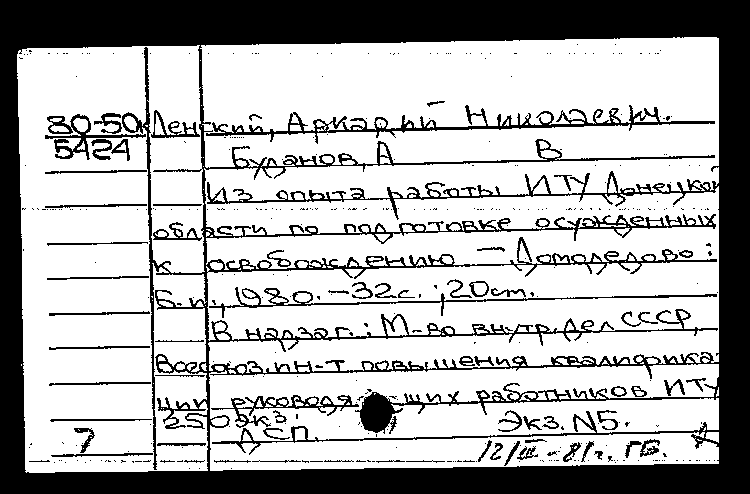 80-50к Ленский, Аркадий Николаевич.
5424 Буданов, А В
Из опыта работы ИТУ Донецкой
области по подготовке осужденных
к освобождению — Домодедово :
Б.и., 1980. -32с. ; 20 ст.
В надзаг.: М-во внутр. дел СССР,
Всесоюз. ин-т повышения квалифика-
ции руководящих работников ИТУ
250 экз. Экз. N5.
7 ДСП.
12/III-81г. ГБ.